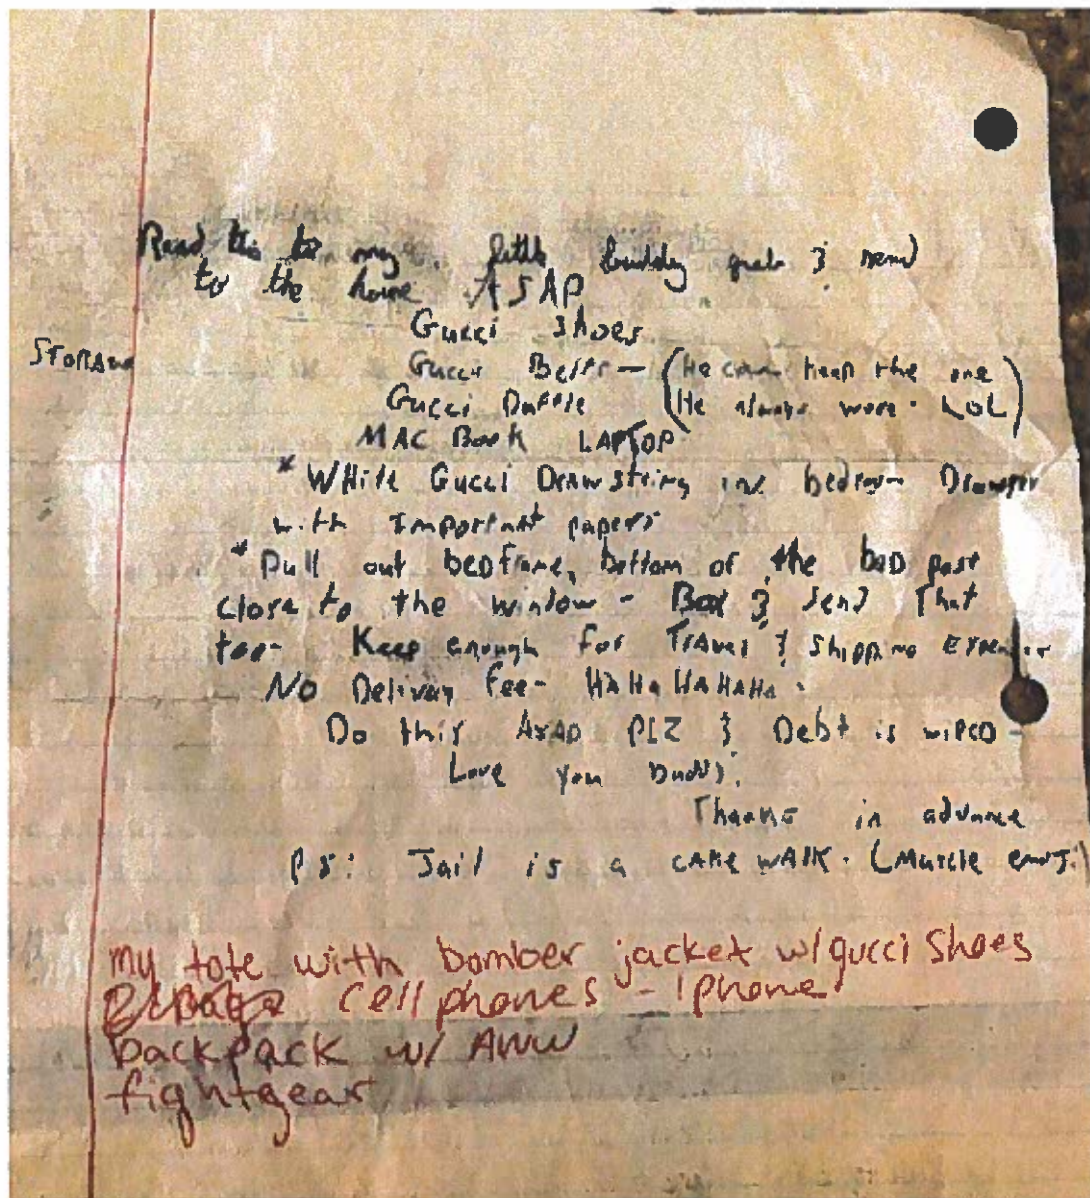 Read this to my little buddy grab & send
to the house ASAP
Gucci Shoes
STORAGE
Gucci Belts - (He can keep the one
He always wore - LOL)
Gucci Duffle
MAC Book LAPTOP
* WHite Gucci Drawstring in bedroom Drawer
with Important papers
* Pull out bedframe, bottom of the bed post
close to the window - Box & send That
too - Keep enough for Travel & Shipping Expenses
No Delivery fee - HAHaHAHAHa -
Do this ASAP PLZ & Debt is wiped -
Love you Buddy.
Thanks in advance
PS: Jail is a cake wAlk. (Muscle emoji
my tote with bomber jacket w/gucci shoes
cellphones - Iphone
backpack w/ AWW
fightgear